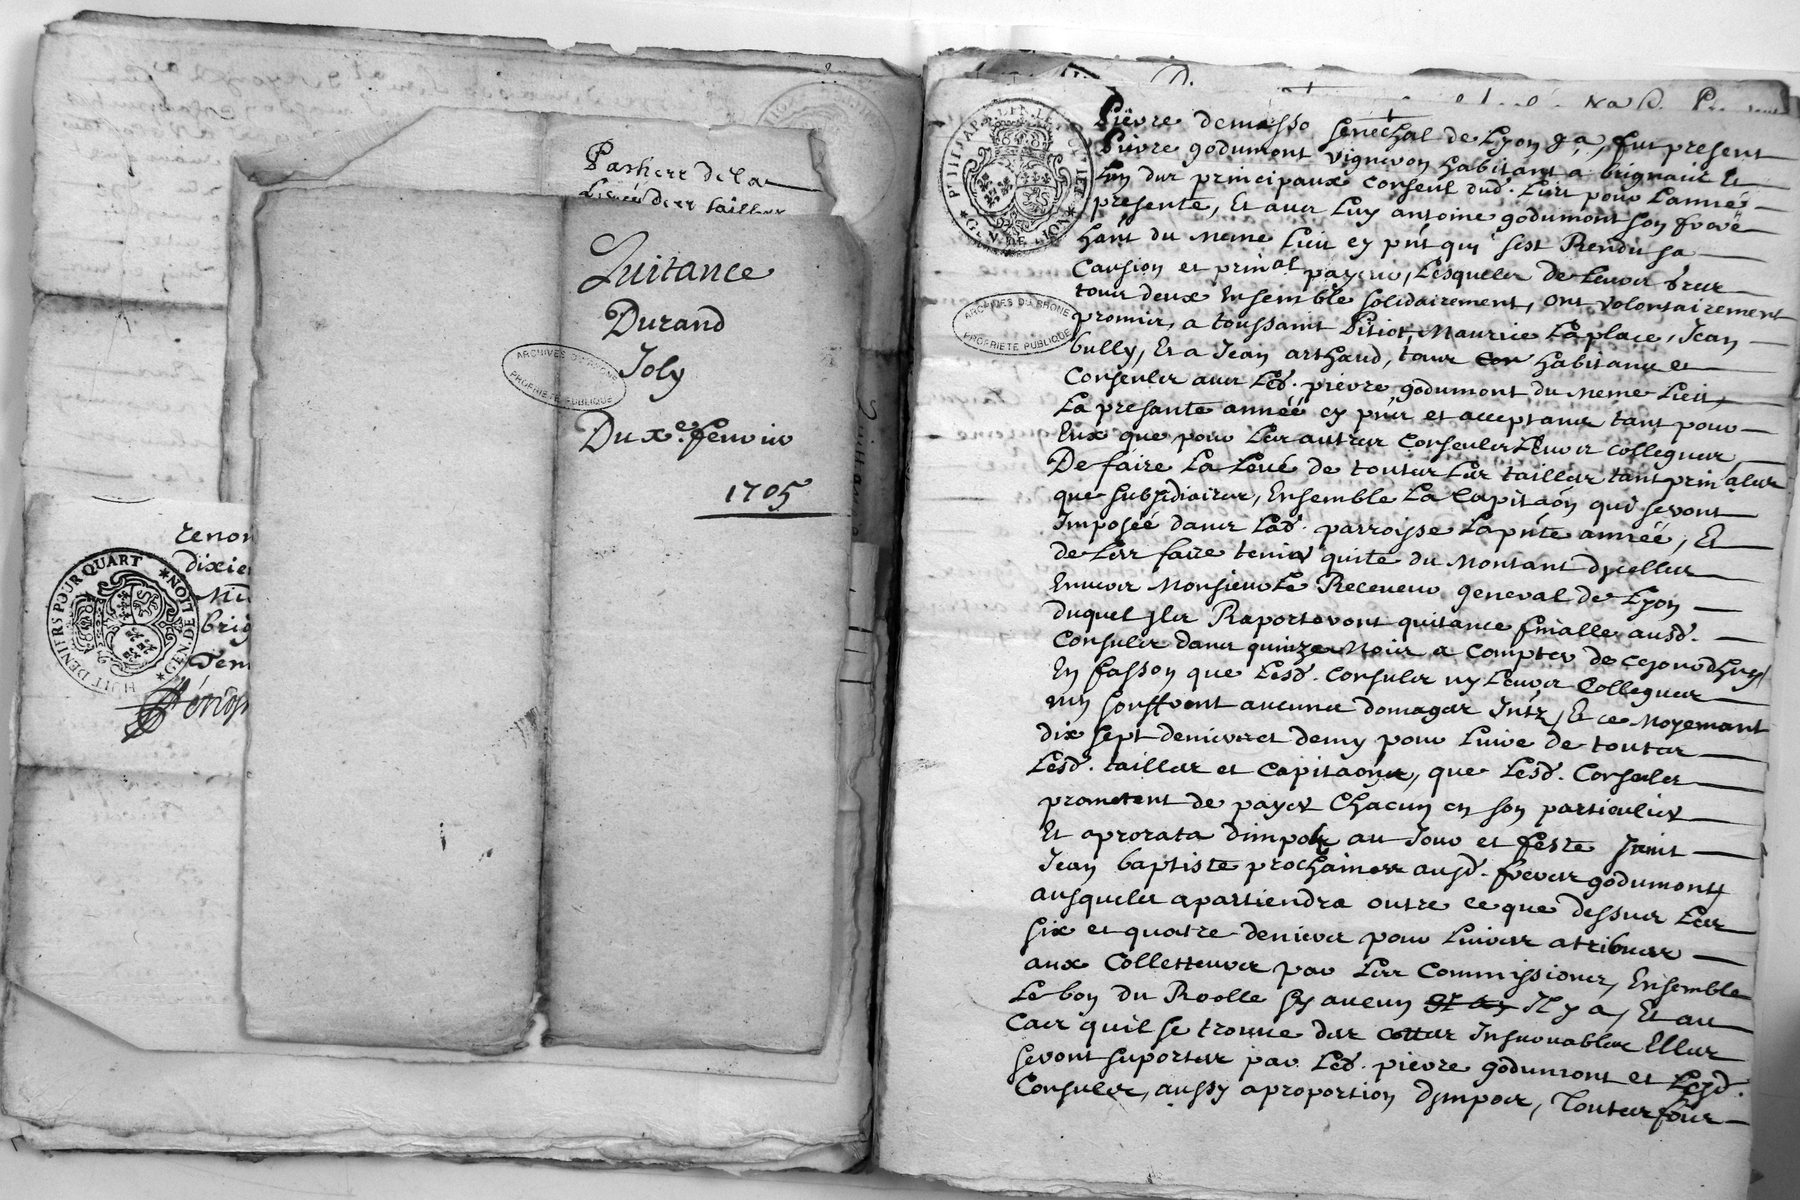 Pasherr de la
Levée derr tailler
Quitance
Durand
Joly
Du xe. fevrier
1705
ARCHIVES DU RHONE
PROPRIETE PUBLIQUE
dixie
brig
HUIT DENIERS POUR QUART * GEN. DE LION *
* GEN. DE LION *
ARCHIVES DU RHONE
PROPRIETE PUBLIQUE
Pierre demasso senechal de Lyon fut present
Pierre godumont vigneron habitant a brignaiz
Lun des principaux Consulz dud. Lieu pour Lanné
presente, Et avec Luy antoine godumont son frere
hant du meme Lieu ey pnt qui sest Rendu sa
Caution et prinal payeur, Lesqueles de Leurs grez
tous deux Ensemble solidairement, ont volontairement
promis, a toussaint Pitiot, Maurice Laplace, Jean
bully, Et a Jean arthaud, tous habitans et
Consules avec Led. pierre godumont du meme Lieu,
La presante année ey pnts et acceptans tant pour
Eux que pour Les autres Consules Leurs collegues
De faire La Levé de toutes Les tailles tant prinales
que subsidiaires, Ensemble La Capitaon qui seront
Imposéé dans Lad. parroisse La pnte année, Et
de Les faire tenir quite du Montant dycelles
Envers Monsieur Le Receveur general de Lyon
duquel Ils Raporteront quitance finalle ausd.
Consules dans quinze Mois a Compter de cejourdhuy
En fasson que Lesd. Consules ny Leurs Collegues
ny souffrent aucuns domages Intz, Et ce Moyenant
dix sept deniers et demy pour Livre de toutes
Lesd. tailles et Capitaons, que Lesd. Consules
prometent de payer Chacun en son particulier
Et aprorata dimpos au Jour et feste saint
Jean baptiste prochaines ausd. freres godumont
ausqueles apartiendra outre ce que dessus Les
six et quatre deniers pour Livres atribues
aux Colletteurs par Les Commissions, Ensemble
Le bon du Roolle sy aucun Il y a, Et au
Cas quil se trouve des cottes Insuvables Elles
seront suportes par Led. pierre godumont et Lesd.
Consules, aussy aproportion dimpos, toutes fois